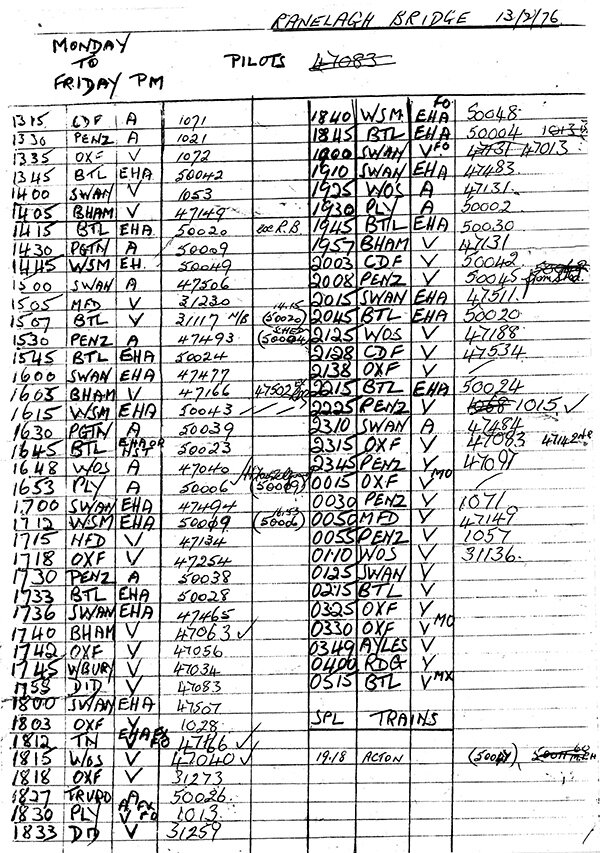 RANELAGH BRIDGE 13/2/76.
MONDAY
TO
FRIDAY PM
PILOTS 47083
1315 CDF A 1071
1330 PENZ A 1021
1335 OXF V 1072
1345 BTL EHA 50042
1400 SWAN V 1053
1405 BHAM V 47149
1415 BTL EHA 50020 R.B.
1430 PGTN A 50009
1445 WSM EH. 50049
1500 SWAN A 47506
1505 MFD V 31230
1507 BTL V 31117 M/B 14.15 (50020)
1530 PENZ A 47493 SHED (50004)
1545 BTL EHA 50024
1600 SWAN EHA 47477
1603 BHAM V 47166 47502
1615 WSM EHA 50043
1630 PGTN A 50039
1645 BTL EHA OR HST 50023
1648 WOS A 47040
1653 PLY A 50006 (50009)
1700 SWAN EHA 47494
1712 WSM EHA 50009 1653 (50006)
1715 HFD V 47134
1718 OXF V 47254
1730 PENZ A 50038
1733 BTL EHA 50028
1736 SWAN EHA 47465
1740 BHAM V 47063 ✓
1742 OXF V 47056
1745 WBURY V 47034
1755 DID V 47083
1800 SWAN EHA 47507
1803 OXF V 1028
1812 TN EHA FX V FO 47186 ✓
1815 WOS V 47040 ✓
1818 OXF V 31273
1827 TRURO A 50026
1830 PLY A FX V FO 1013
1833 DID V 31259
1840 WSM EHA FO 50048
1845 BTL EHA 50004
1900 SWAN V FO 47131 47013
1910 SWAN EHA 47483
1925 WOS A 47131
1930 PLY A 50002
1945 BTL EHA 50030
1957 BHAM V 47131
2003 CDF V 50042
2008 PENZ V 50045
2015 SWAN EHA 47511
2045 BTL EHA 50020
2125 WOS V 47188
2128 CDF V 47534
2138 OXF V
2215 BTL EHA 50024
2225 PENZ V 1068 1015 ✓
2310 SWAN A 47484
2315 OXF V 47083
2345 PENZ V 47091
0015 OXF V MO
0030 PENZ V 1071
0050 MFD V 47149
0055 PENZ V 1057
0110 WOS V 31136
0125 SWAN V
0215 BTL V
0325 OXF V
0330 OXF V MO
0349 AYLES V
0400 RDG V
0515 BTL V MX
SPL TRAINS
19.18 ACTON